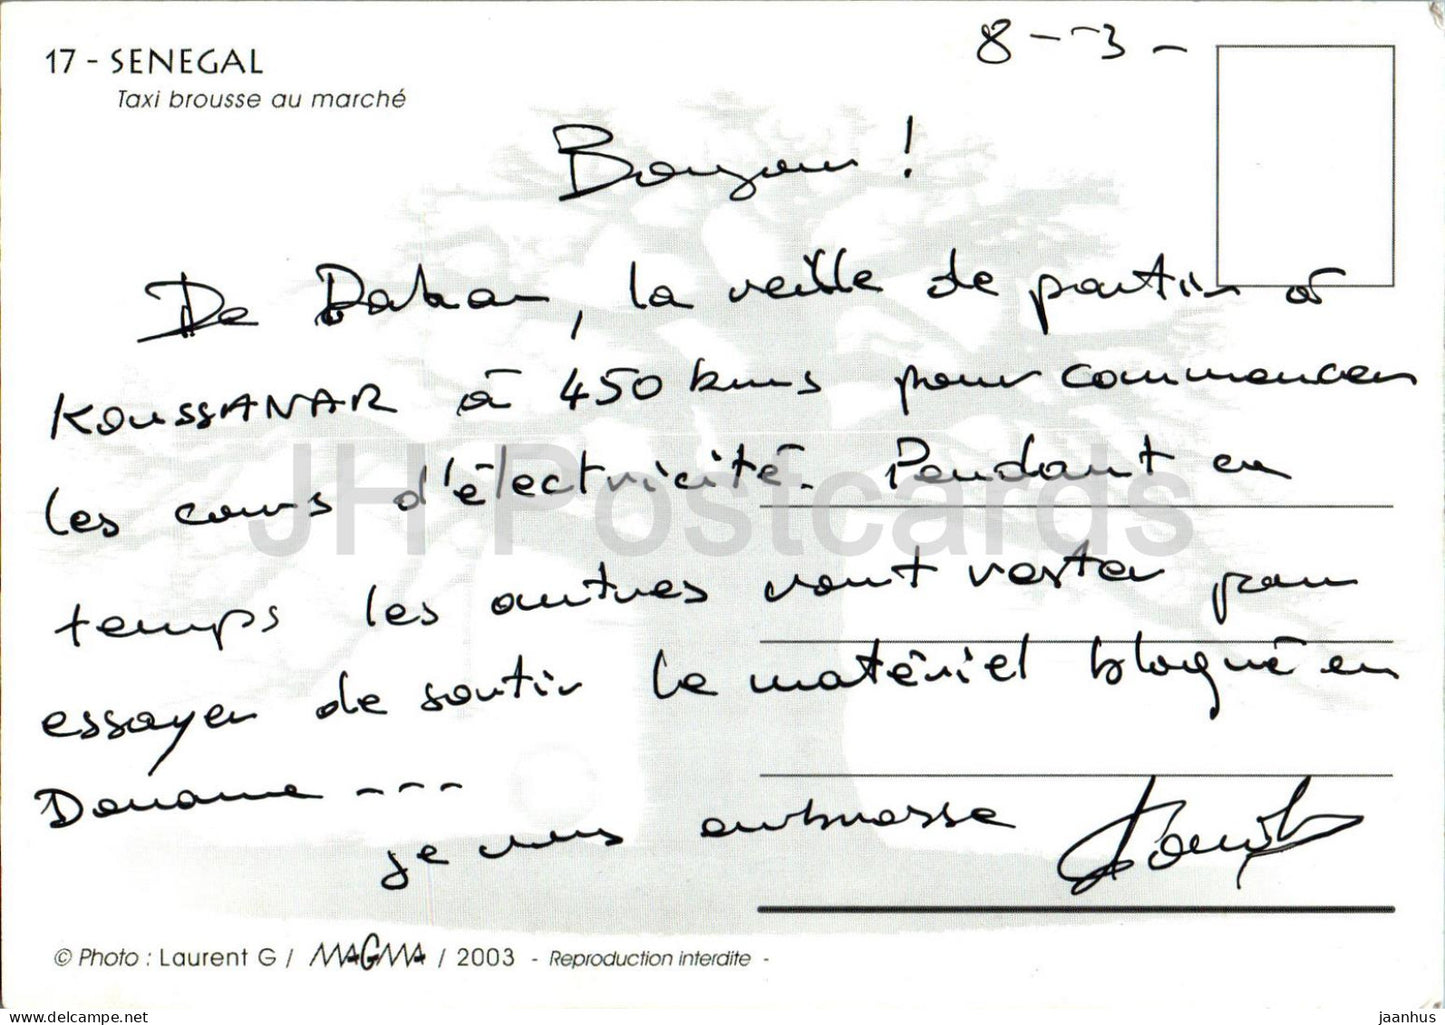 17 - SENEGAL
Taxi brousse au marché
8 - - 3 -
Bonjour !
De Dakar, la veille de partir à
KOUSSANAR à 450 kms pour commencer
les cours d'électricité. Pendant ce
temps les autres vont rester pour
essayer de sortir le matériel bloqué en
Douane ---
je vous embrasse
JH Postcards
© Photo : Laurent G / MAGMA / 2003 - Reproduction interdite -
www.delcampe.net
jaanhus